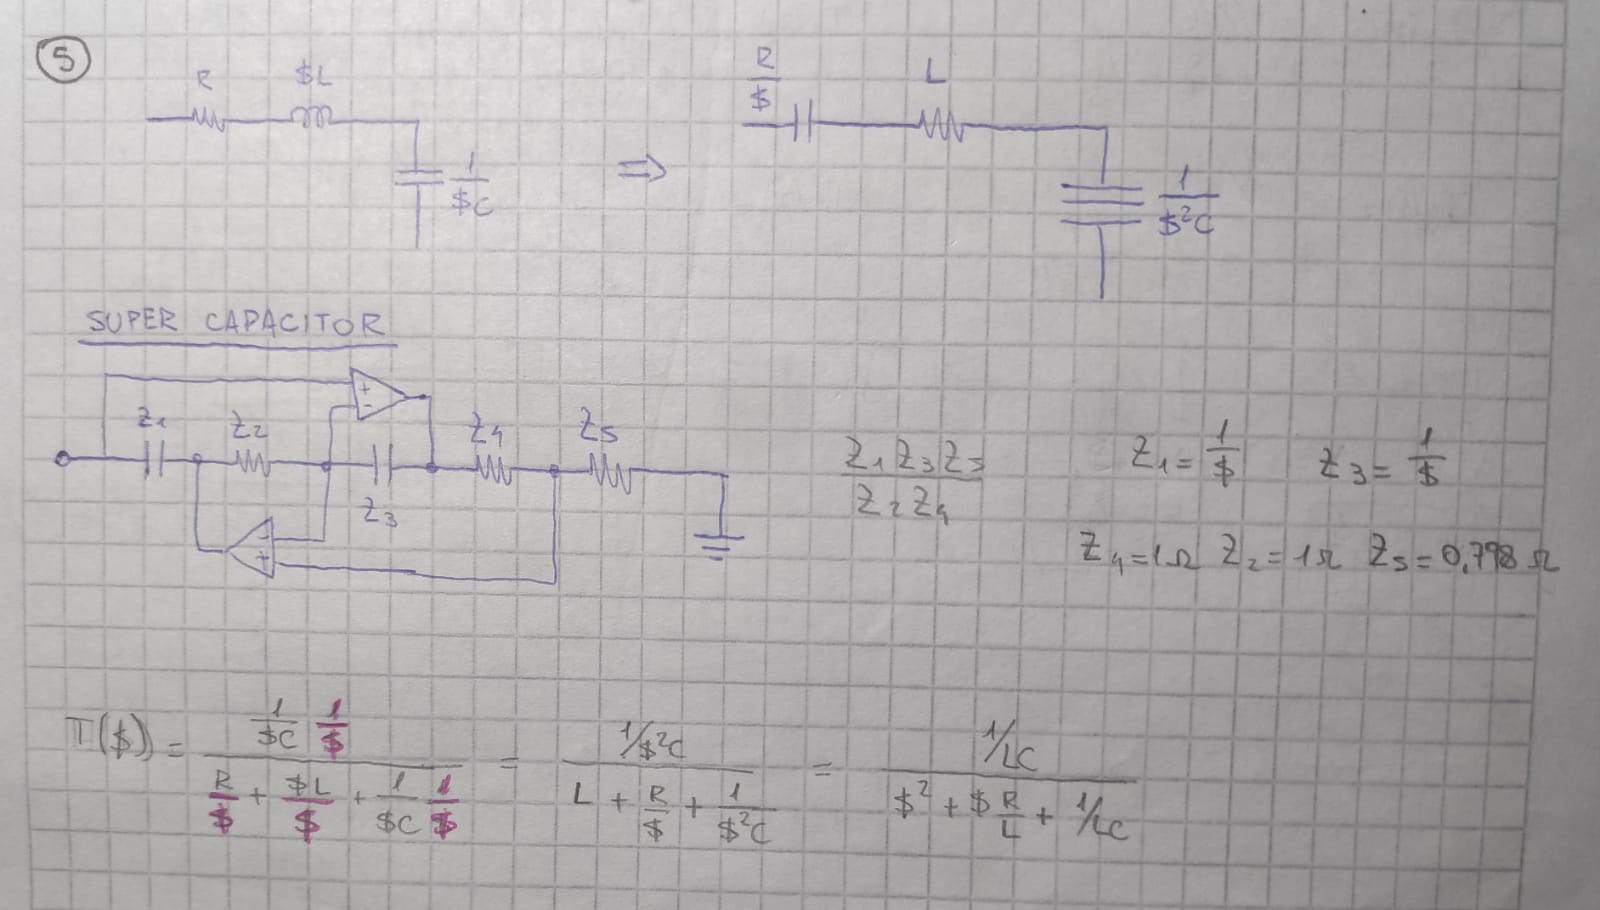 5
R $L 1/$C ⇒ R/$ L 1/$²C
SUPER CAPACITOR
+ -
Z1 Z2 Z3 Z4 Z5
- +
Z1 Z3 Z5 / Z2 Z4 Z1 = 1/$ Z3 = 1/$
Z4 = 1Ω Z2 = 1Ω Z5 = 0,798 Ω
T($) = (1/$C 1/$) / (R/$ + $L/$ + 1/$C 1/$) = (1/$²C) / (L + R/$ + 1/$²C) = (1/LC) / ($² + $ R/L + 1/LC)